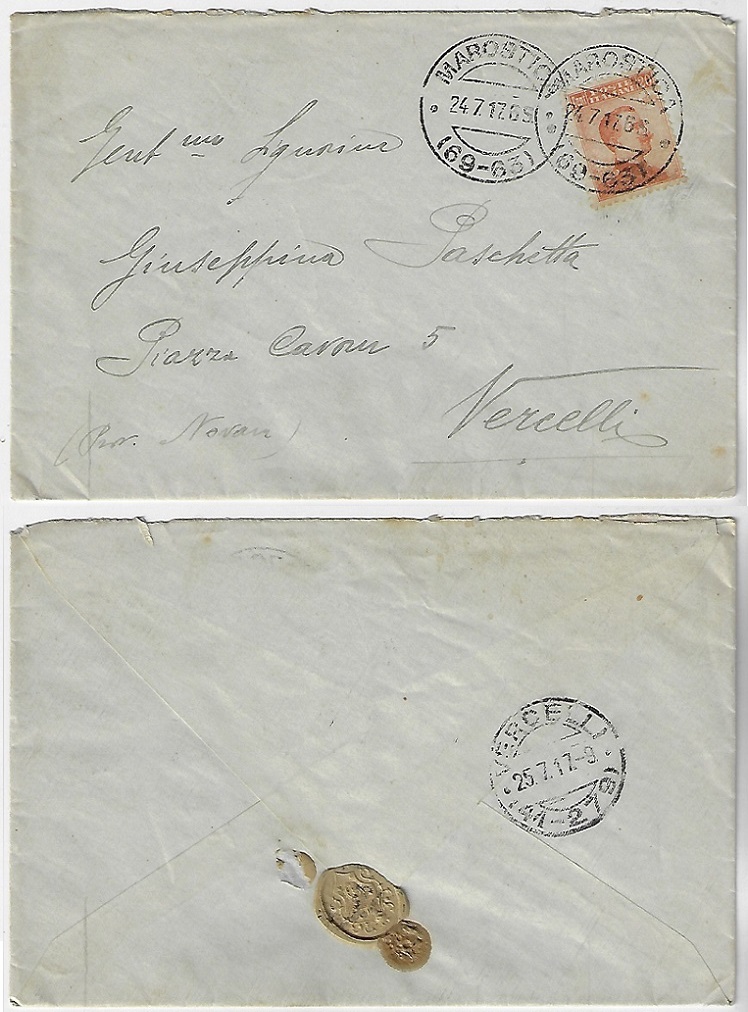 MAROSTICA
24.7.17.6S
(69-63)
MAROSTICA
24.7.17.6S
(69-63)
Gent ma Signorina
Giuseppina Paschetta
Piazza Cavour 5
Vercelli
(Prov. Novara)
VERCELLI
25.7.17-9
(41-2